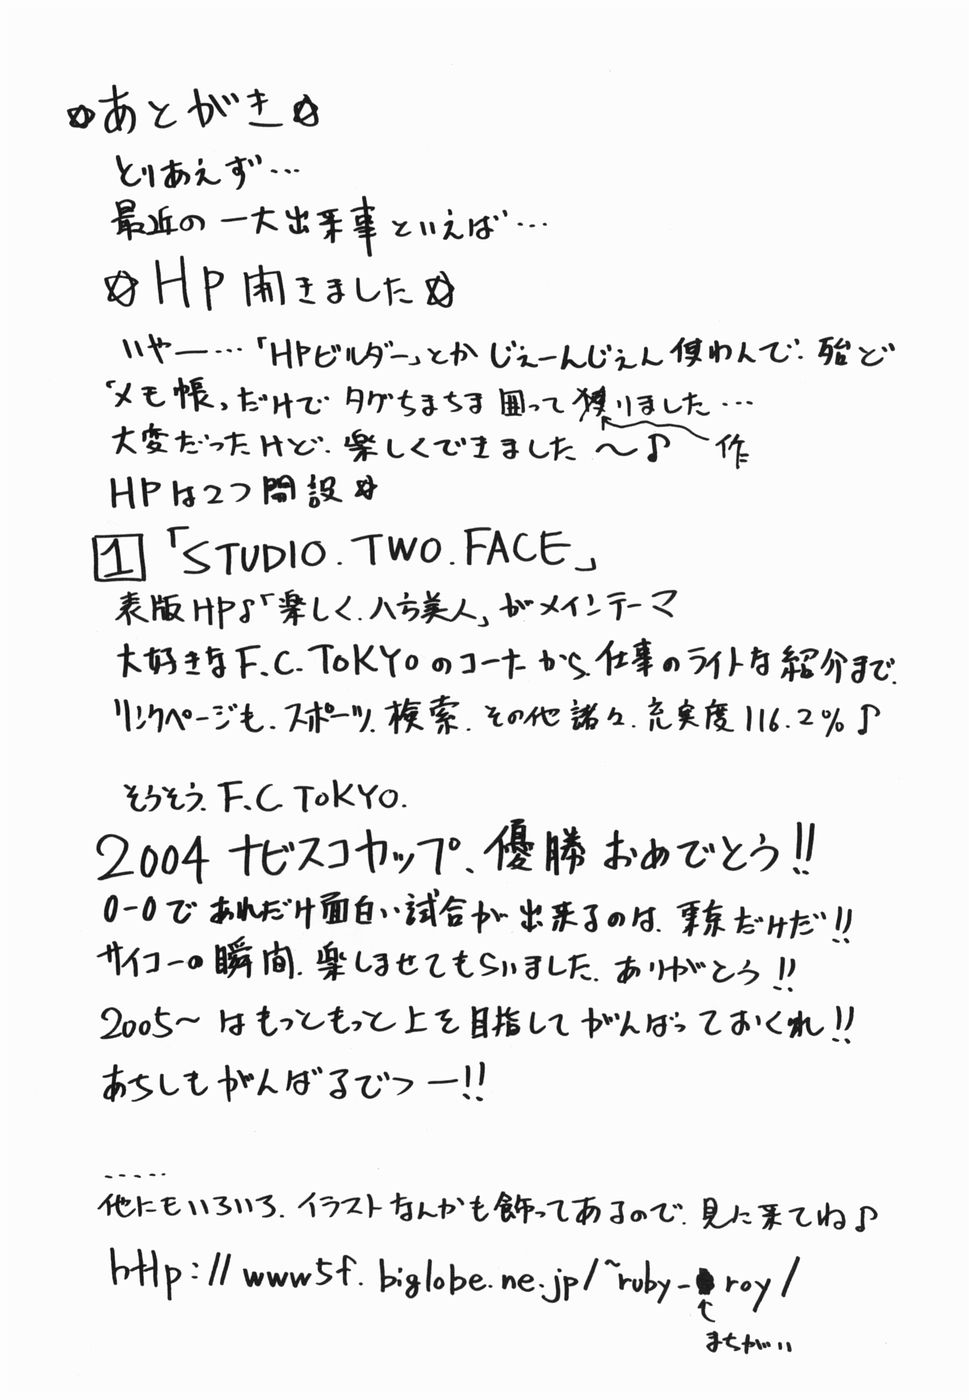 ☆あとがき☆
とりあえず…
最近の一大出来事といえば…
☆HP開きました☆
いやー…「HPビルダー」とかじぇーんじぇん使わんで、殆ど
「メモ帳」だけでタグちまちま囲って りました…
作
大変だったけど、楽しくできました〜♪
HPは2つ開設☆
1「STUDIO.TWO.FACE」
表版HP♪「楽しく、八方美人」がメインテーマ
大好きなF.C.TOKYOのコーナーから、仕事のライトな紹介まで、
リンクページも、スポーツ、検索、その他諸々、充実度116.2%♪
そうそう、F.C.TOKYO.
2004ナビスコカップ、優勝おめでとう!!
0-0であれだけ面白い試合が出来るのは、東京だけだ!!
サイコーの瞬間、楽しませてもらいました、ありがとう!!
2005〜はもっともっと上を目指してがんばっておくれ!!
あちしもがんばるでつー!!
.....
他にもいろいろ、イラストなんかも飾ってあるので、見に来てね♪
http://www5f.biglobe.ne.jp/~ruby_roy/
まちがい